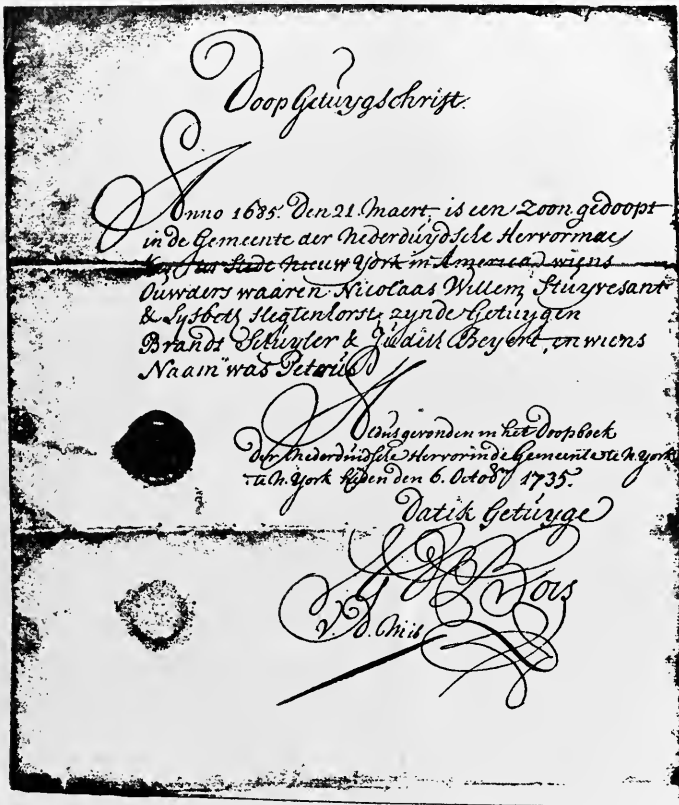 Doop Getuygschrift.
Anno 1685. Den 21. Maert, is een Zoon gedoopt
in de Gemeente der Nederduydsche Hervormde
ter Stede Nieuw York in America, wiens
Ouwders waaren Nicolaas Willem Stuyvesant
& Lysbeth Slegtenhorst, zynde Getuygen
Brandt Schuyler & Judith Beyert, en wiens
Naam was Petrus.
Aldus gevonden in het Doopboek
Der Nederduidsche Hervormde Gemeente te N. York
te N. York heden den 6. Octobr. 1735.
Dat ik Getuyge
Bois
V. D. Mi